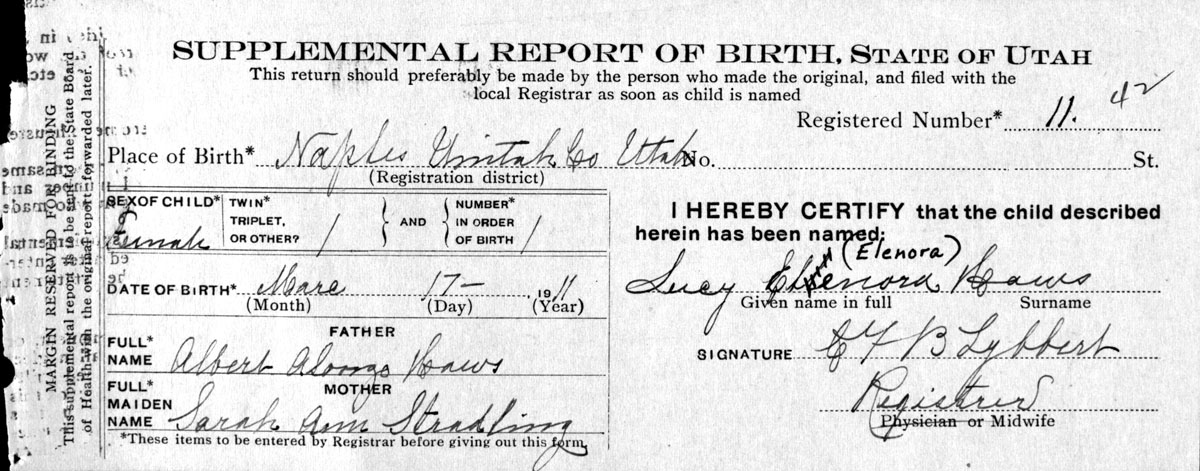 SUPPLEMENTAL REPORT OF BIRTH, STATE OF UTAH
This return should preferably be made by the person who made the original, and filed with the
local Registrar as soon as child is named
Registered Number* 11. 42
Place of Birth* Naples Uintah Co Utah No. St.
(Registration district)
SEX OF CHILD* Female
TWIN* TRIPLET, OR OTHER? / AND NUMBER* IN ORDER OF BIRTH /
DATE OF BIRTH* Marc 17- 1911
(Month) (Day) (Year)
FATHER
FULL* NAME Albert Alonzo Haws
MOTHER
FULL* MAIDEN NAME Sarah Ann Stradling
*These items to be entered by Registrar before giving out this form
I HEREBY CERTIFY that the child described
herein has been named:
(Elenora)
Lucy Elenora Haws
Given name in full Surname
SIGNATURE C F B Lybbert
Registrer
Physician or Midwife
MARGIN RESERVED FOR BINDING
This supplemental report is to be sent to the State Board
of Health with the original report forwarded later.